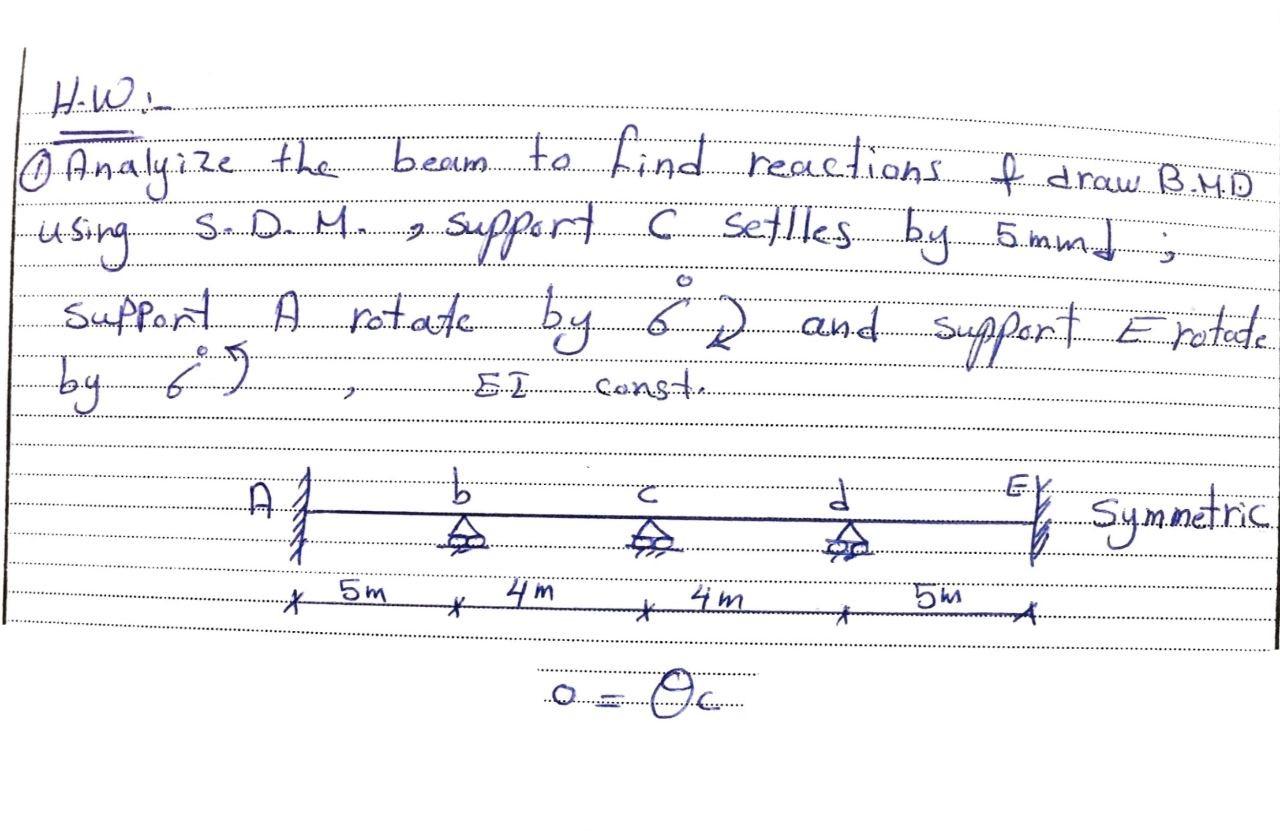 H.W:-
① Analyize the beam to find reactions & draw B.M.D
using S.D.M. , support C setlles by 5mm↓ ;
support A rotate by 6° ↻ and support E rotate
by 6° ↺ , EI const.
A b c d E Symmetric
5m 4m 4m 5m
0 = θc